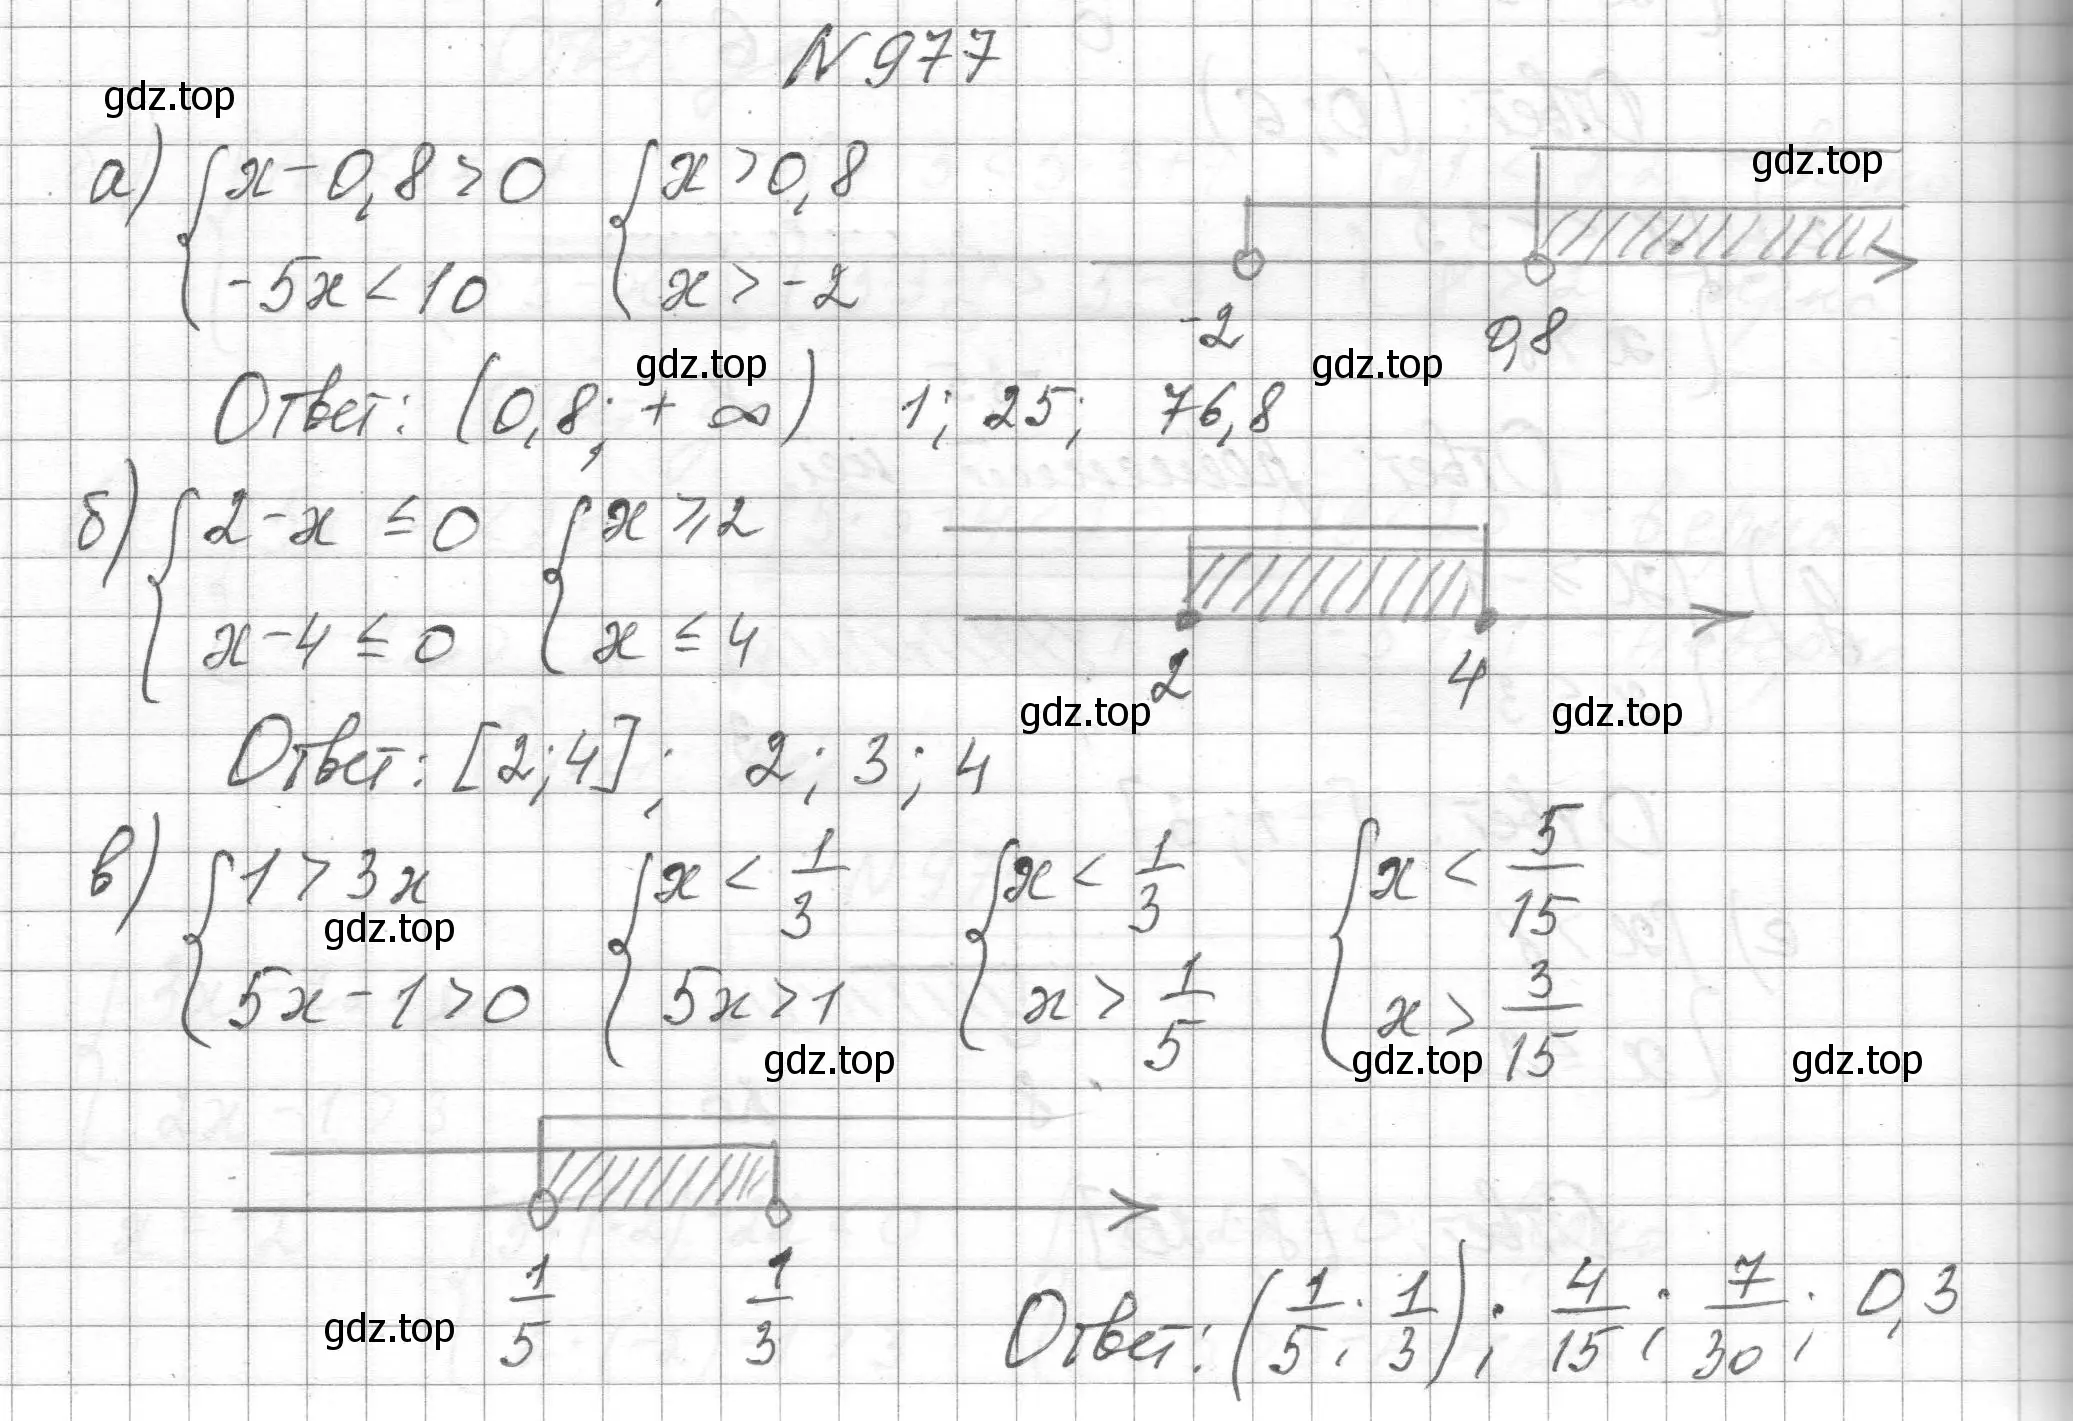 N 977
gdz.top
а) { x - 0,8 > 0 { x > 0,8
-5x < 10 x > -2
gdz.top
-2 0,8
gdz.top gdz.top
Ответ: (0,8; + ∞) 1; 25; 76,8
б) { 2 - x ≤ 0 { x ≥ 2
x - 4 ≤ 0 x ≤ 4
2 4
gdz.top gdz.top
Ответ: [2; 4]; 2; 3; 4
в) { 1 > 3x { x < 1/3 { x < 1/3 { x < 5/15
gdz.top
5x - 1 > 0 5x > 1 x > 1/5 x > 3/15
gdz.top gdz.top gdz.top
1/5 1/3
gdz.top
Ответ: (1/5; 1/3); 4/15; 7/30; 0,3